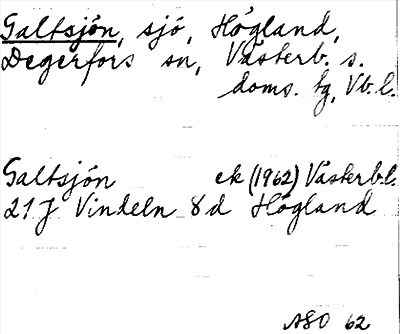 Galtsjön, sjö, Högland,
Degerfors sn, Västerb. s.
doms. tg, Vb. l.
Galtsjön ek (1962) Västerb.l.
21 J Vindeln 8d Högland
ASO 62